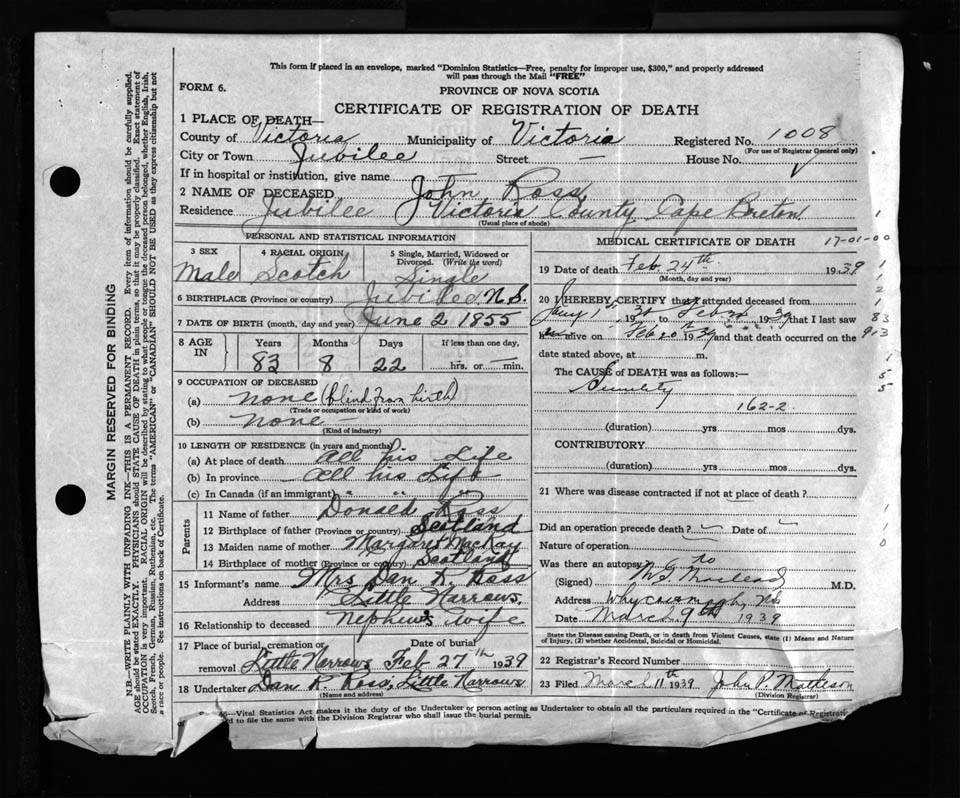 This form if placed in an envelope, marked "Dominion Statistics—Free, penalty for improper use, $300," and properly addressed
will pass through the Mail "FREE"
FORM 6.
PROVINCE OF NOVA SCOTIA
CERTIFICATE OF REGISTRATION OF DEATH
1 PLACE OF DEATH—
County of Victoria Municipality of Victoria Registered No. 1008
(For use of Registrar General only)
City or Town Jubilee Street — House No.
If in hospital or institution, give name
2 NAME OF DECEASED John Ross
Residence Jubilee Victoria County, Cape Breton
(Usual place of abode)
PERSONAL AND STATISTICAL INFORMATION
3 SEX
Male
4 RACIAL ORIGIN
Scotch
5 Single, Married, Widowed or
Divorced. (Write the word)
Single
6 BIRTHPLACE (Province or country) Jubilee, N.S.
7 DATE OF BIRTH (month, day and year) June 2 1855
8 AGE IN
Years Months Days If less than one day,
83 8 22 hrs. or min.
9 OCCUPATION OF DECEASED
(a) none (blind from birth)
(Trade or occupation or kind of work)
(b) none —
(Kind of industry)
10 LENGTH OF RESIDENCE (in years and months)
(a) At place of death All his Life
(b) In province All his Life
(c) In Canada (if an immigrant) " " "
Parents
11 Name of father Donald Ross
12 Birthplace of father (Province or country) Scotland
13 Maiden name of mother Margaret MacKay
14 Birthplace of mother (Province or country) Scotland
15 Informant's name Mrs Dan K. Ross
Address Little Narrows
16 Relationship to deceased Nephew's wife
17 Place of burial, cremation or Date of burial
removal Little Narrows Feb 27th 1939
18 Undertaker Dan R. Ross, Little Narrows
(Name and address)
MEDICAL CERTIFICATE OF DEATH
17-01-00
19 Date of death Feb 24th 1939
(Month, day and year)
20 I HEREBY CERTIFY that I attended deceased from
to 1939 that I last saw
83
alive on Feb 20 1939 and that death occurred on the
913
date stated above, at m.
The CAUSE of DEATH was as follows:—
162-2
(duration) yrs mos dys.
CONTRIBUTORY
(duration) yrs mos dys.
21 Where was disease contracted if not at place of death?
Did an operation precede death? Date of
Nature of operation
Was there an autopsy? no
(Signed) M.D.
Address
Date March 9th 1939
State the Disease causing Death, or in death from Violent Causes, state (1) Means and Nature
of Injury, (2) whether Accidental, Suicidal or Homicidal.
22 Registrar's Record Number
23 Filed March 11th 1939 John P. Matheson
(Division Registrar)
Vital Statistics Act makes it the duty of the Undertaker or person acting as Undertaker to obtain all the particulars required in the "Certificate of Registration
to file the same with the Division Registrar who shall issue the burial permit.
MARGIN RESERVED FOR BINDING
N.B.—WRITE PLAINLY WITH UNFADING INK—THIS IS A PERMANENT RECORD. Every item of information should be carefully supplied.
AGE should be stated EXACTLY. PHYSICIANS should STATE CAUSE OF DEATH in plain terms, so that it may be properly classified. Exact statement of
OCCUPATION is very important. RACIAL ORIGIN will be described by stating to what people or tongue the deceased person belonged, whether English, Irish,
Scotch, French, German, Russian, Ruthenian, etc. The terms "AMERICAN" or "CANADIAN" SHOULD NOT BE USED as they express citizenship but not
a race or people. See instructions on back of Certificate.